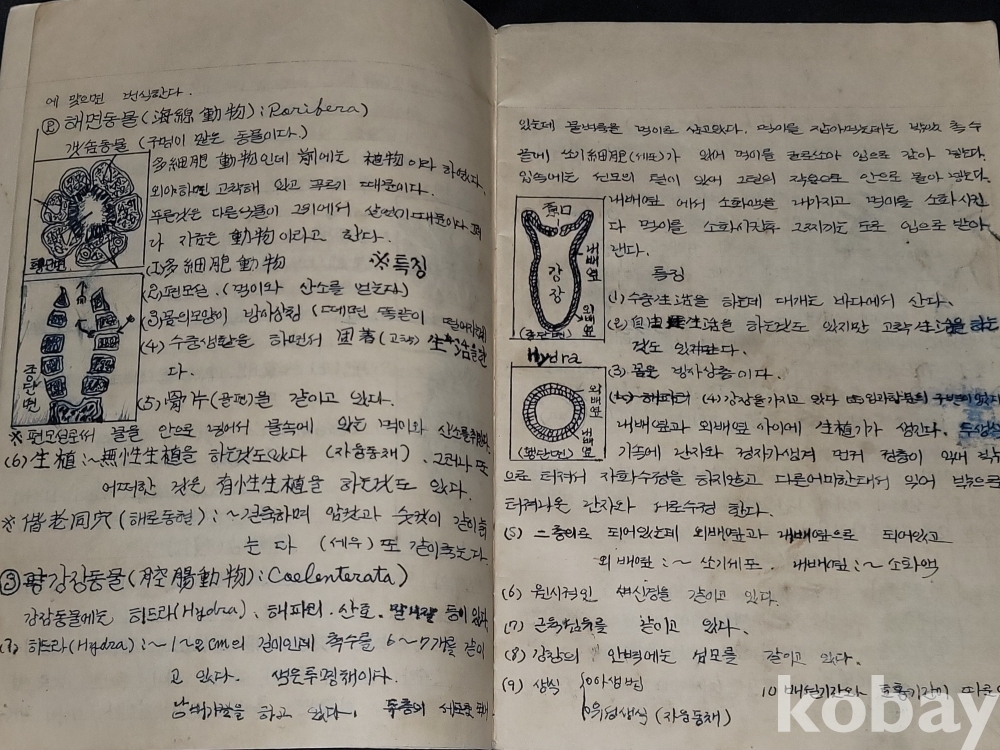 에 맞으면 번식한다.
② 해면동물(海綿動物):Poribera)
갯솜동물 (구멍이 많은 동물이다)
多細胞 動物인데 前에는 植物이라 하였다.
외야하면 고착해 있고 푸르기 때문이다.
푸른것은 다른 식물이 그위에서 살었기때문이다
다 지금은 動物이라고 한다.
횡단면
(1)多細胞 動物 ※특징
(2)편모실. (먹이와 산소를 얻는다)
(3)몸의모양이 방사상칭 (떼면 똑같이
(4) 수중생활을 하면서 固着(고착) 生活을한
다.
(5) 骨片(골편)을 갖이고 있다.
종단면
※편모실로써 물을 안으로 넣어서 물속에 있는 먹이와 산소를
(6)生植:~無性生植을 하는것도있다 (자웅동체). 그러나 또
어떠한 것은 有性生植을 하는것도 있다.
※偕老同穴(해로동혈):~건축하며 암컷과 숫컷이 같이
는다 (세우) 또 같이죽는다.
③ 강장동물(腔腸動物):Coelenterata)
강장동물에는 히드라(Hydra), 해파리. 산호. 말미잘 등이 있다
히드라(Hydra):~1~2cm의 길이인데 촉수를 6~7개를 갖이
고 있다. 색은투명체이다.
을 하고 있다.
있는데 물벼룩을 먹이로 삼고있다. 먹이를 잡아먹는데는 촉수
끝에 쏘기細胞(세포)가 있어 먹이를 입으로 잡아 넣는다.
입속에는 섬모의 털이 있어 그털의 작용으로 안으로 몰아 넣는다.
내배엽 에서 소화액을 내가지고 먹이를 소화시킨
다 먹이를 소화시킨후 찌기는 도로 입으로 받아
낸다.
口
강장
내배엽
외배엽
(종단면)
특징
(1)수중生活을 하는데 대개는 바다에서 산다.
(2)自由生活을 하는것도 있지만 고착生活을 하는
것도 있다.
Hydra
(3) 몸은 방사상칭이다.
외배엽
내배엽
(횡단면)
(4)강장을가지고 있다
내배엽과 외배엽 사이에 生植기가 생긴다.
기속에 난자와 정자가생겨 먼저 정충이 있어 밖
으로 터져서 자화수정을 하지않고 다른어미한테서 익어 밖으로
터져나온 난자와 서로수정 한다.
(5) 二층으로 되어있는데 외배엽과 내배엽으로 되어있고
외배엽:~ 쏘기세포. 내배엽:~ 소화액
(6) 원시적인 신경을 갖이고 있다.
(7) 근육섬유를 갖이고 있다.
(8) 강장의 안벽에는 섬모를 갖이고 있다.
(9) 생식 아생법
유성생식 (자웅동체)
10 배설기관와 호흡기관이 따로
kobay